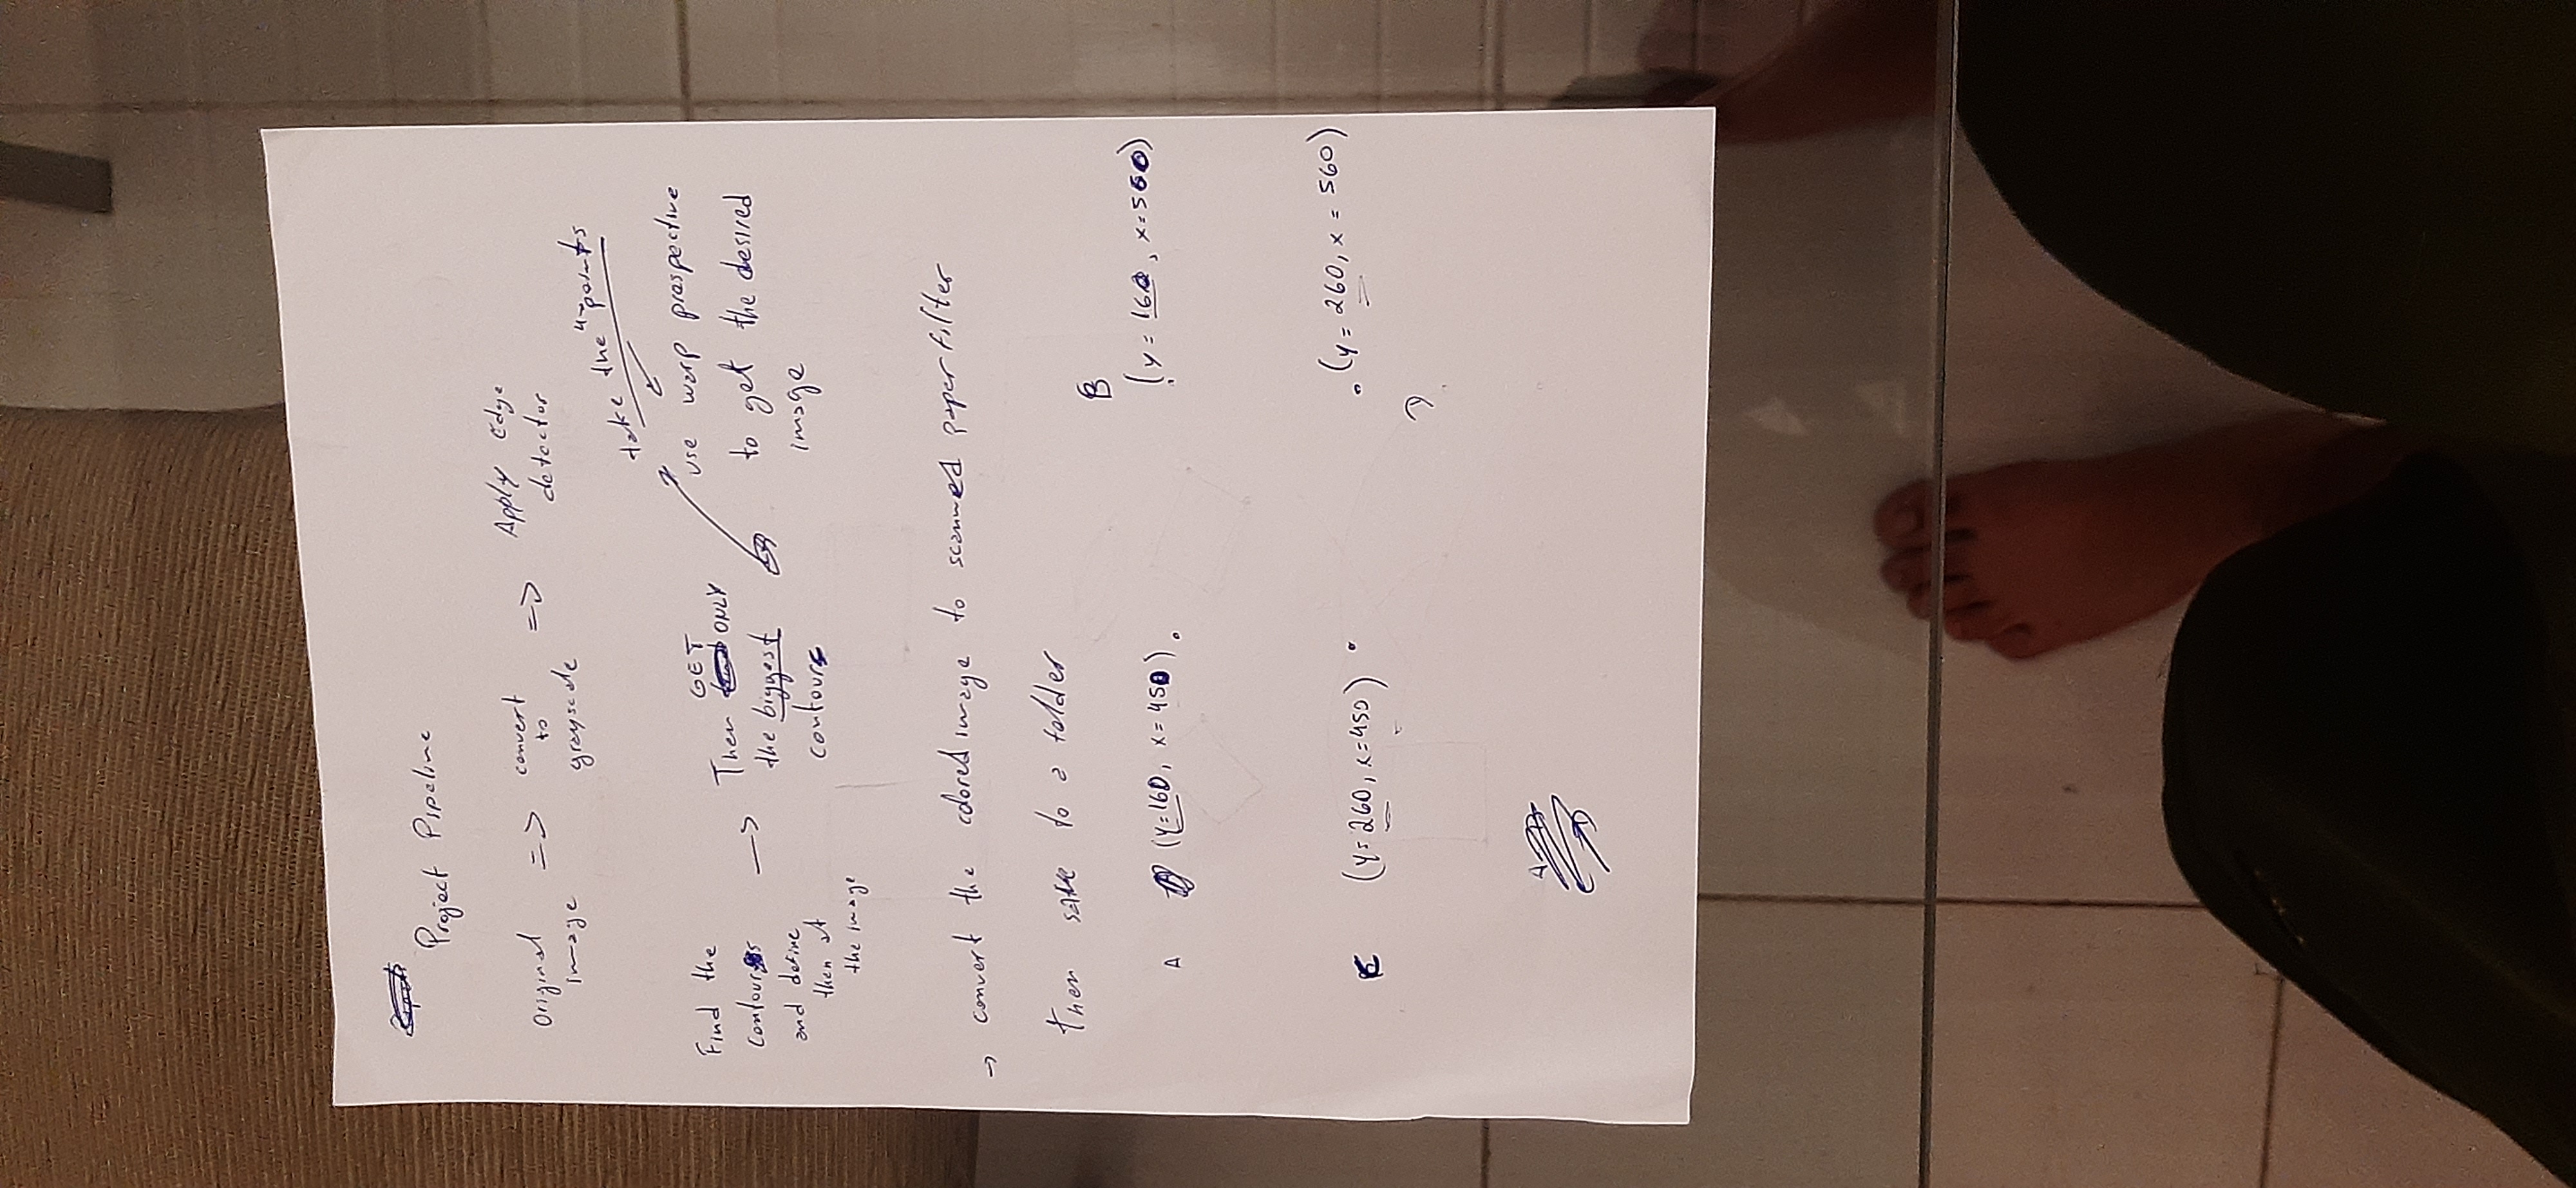 Project Pipeline
Original image => convert to grayscale => Apply Edge detector
Find the
contours
and define
then at
the image
->
GET
Then ONLY
the biggest
contour
take the 4 points
use warp prespective
to get the desired
image
-> convert the colored image to scanned paper filter
then save to a folder
A (y=160, x=450) .
B
(y=160, x=560)
C (y=260, x=450) .
. (y=260, x=560)
D